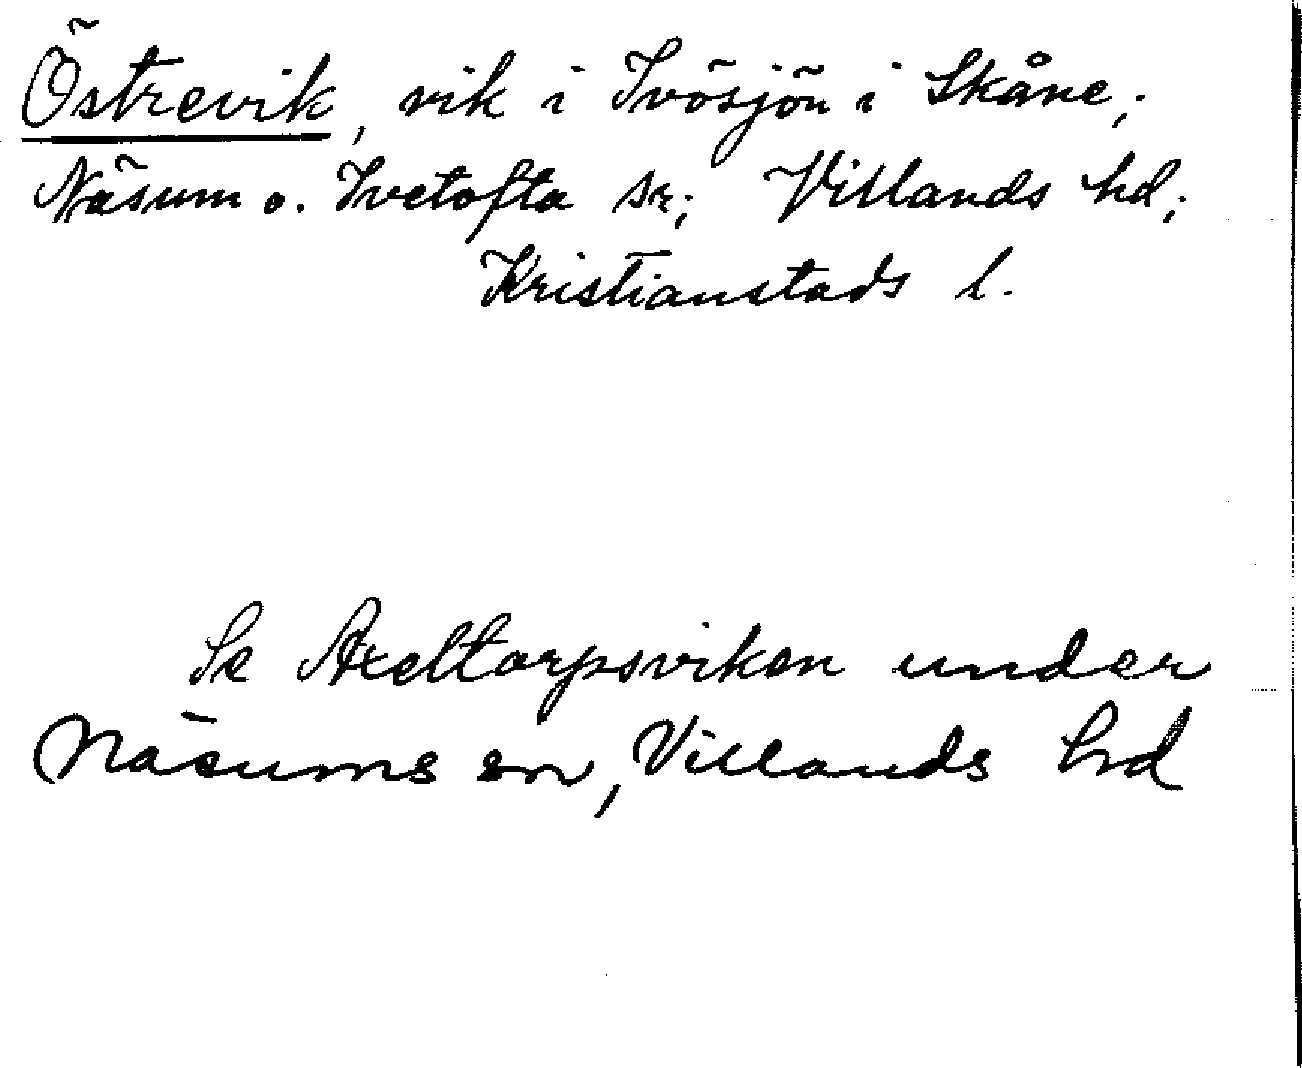 Östrevik, vik i Ivösjön i Skåne;
Näsum o. Ivetofta sr; Villands hd;
Kristianstads l.
Se Axeltorpsviken under
Näsums sn, Villands hd